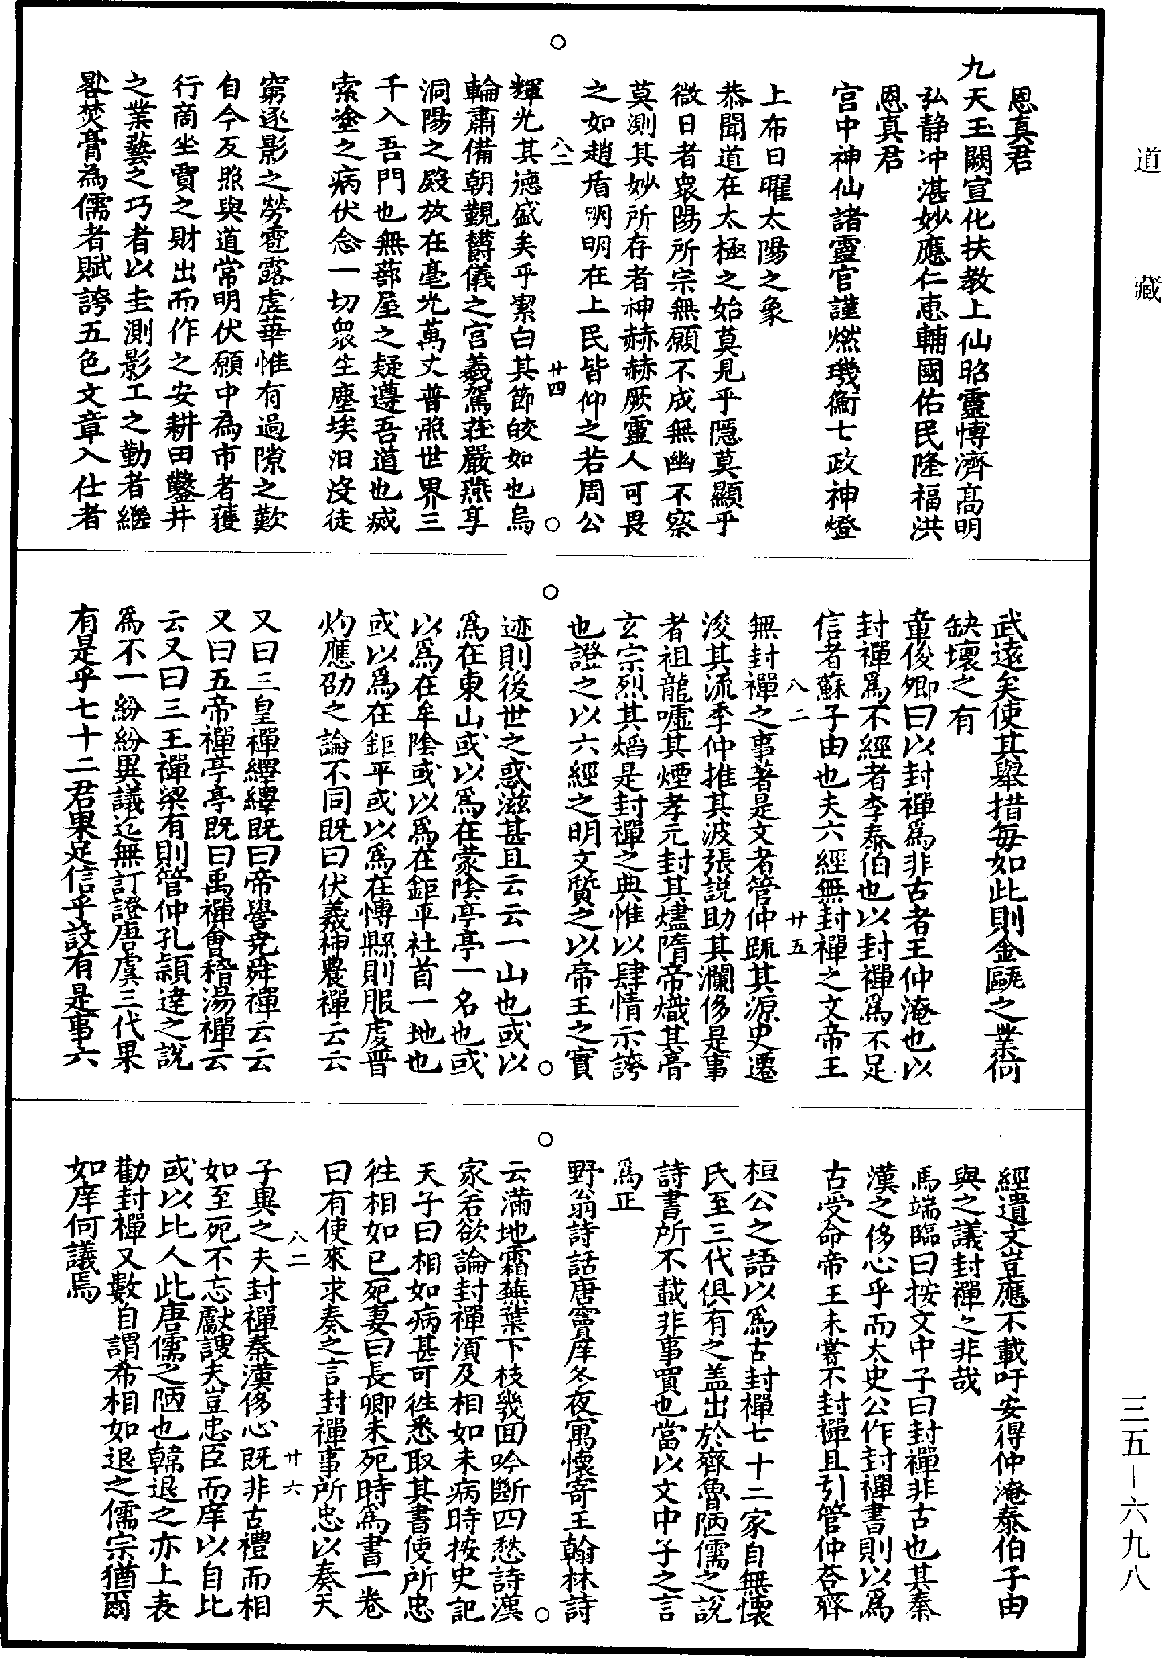 道藏
恩真君
九天玉闕宣化扶教上仙昭靈博濟高明
弘静冲湛妙應仁惠輔國佑民隆福洪
恩真君
宮中神仙諸靈官謹燃璣衡七政神燈
上布日曜太陽之象
恭聞道在太極之始莫見乎隱莫顯乎
微日者衆陽所宗無願不成無幽不察
莫測其妙所存者神赫赫厥靈人可畏
之如趙盾明明在上民皆仰之若周公
八二 廿四
輝光其德盛矣乎絜白其節皎如也烏
輪肅備朝覲欝儀之宮羲駕莊嚴燕享
洞陽之殿放在毫光萬丈普照世界三
千入吾門也無蔀屋之疑遵吾道也烕
索塗之病伏念一切衆生塵埃汨沒徒
窮逐影之勞雹露虛華惟有過隙之歎
自今反照與道常明伏願中為市者獲
行商坐賈之財出而作之安耕田鑿井
之業藝之巧者以圭測影工之勤者繼
晷焚膏為儒者賦誇五色文章入仕者
武遠矣使其舉措每如此則金甌之業何
缺壞之有
章俊卿曰以封禪爲非古者王仲淹也以
封禪爲不經者李泰伯也以封禪爲不足
信者蘇子由也夫六經無封禪之文帝王
八二 廿五
無封禪之事著是文者管仲䟽其源史遷
浚其流季仲推其波張説助其瀾侈是事
者祖龍嘘其煙孝元封其燼隋帝熾其膏
玄宗烈其熖是封禪之典惟以肆情示誇
也證之以六經之明文贊之以帝王之實
迹則後世之惑滋甚且云云一山也或以
爲在東山或以爲在蒙隂亭亭一名也或
以爲在牟隂或以爲在鉅平社首一地也
或以爲在鉅平或以爲在博縣則服虔晋
灼應劭之論不同既曰伏羲神農禪云云
又曰三皇禪繹繹既曰帝嚳堯舜禪云云
又曰五帝禪亭亭既曰禹禪會稽湯禪云
云又曰三王禪梁有則管仲孔頴逹之說
爲不一紛紛異議迄無訂證唐虞三代果
有是乎七十二君果足信乎設有是事六
經遺文豈應不載吁安得仲淹泰伯子由
與之議封禪之非哉
馬端臨曰按文中子曰封禪非古也其秦
漢之侈心乎而太史公作封禪書則以爲
古受命帝王未甞不封禪且引管仲荅齊
桓公之語以爲古封禪七十二家自無懐
氏至三代俱有之盖出於齊魯陋儒之説
詩書所不載非事實也當以文中子之言
爲正
野翁詩話唐竇庠冬夜寓懐寄王翰林詩
云滿地霜蕪葉下枝幾回吟斷四愁詩漢
家若欲論封禪湏及相如未病時按史記
天子曰相如病甚可徃悉取其書使所忠
徃相如已死妻曰長卿未死時爲書一卷
曰有使來求奏之言封禪事所忠以奏天
八二 廿六
子異之夫封禪秦漢侈心既非古禮而相
如至死不忘獻諛夫豈忠臣而庠以自比
或以比人此唐儒之陋也韓退之亦上表
勸封禪又數自謂希相如退之儒宗猶爾
如庠何議焉
三五—六九八